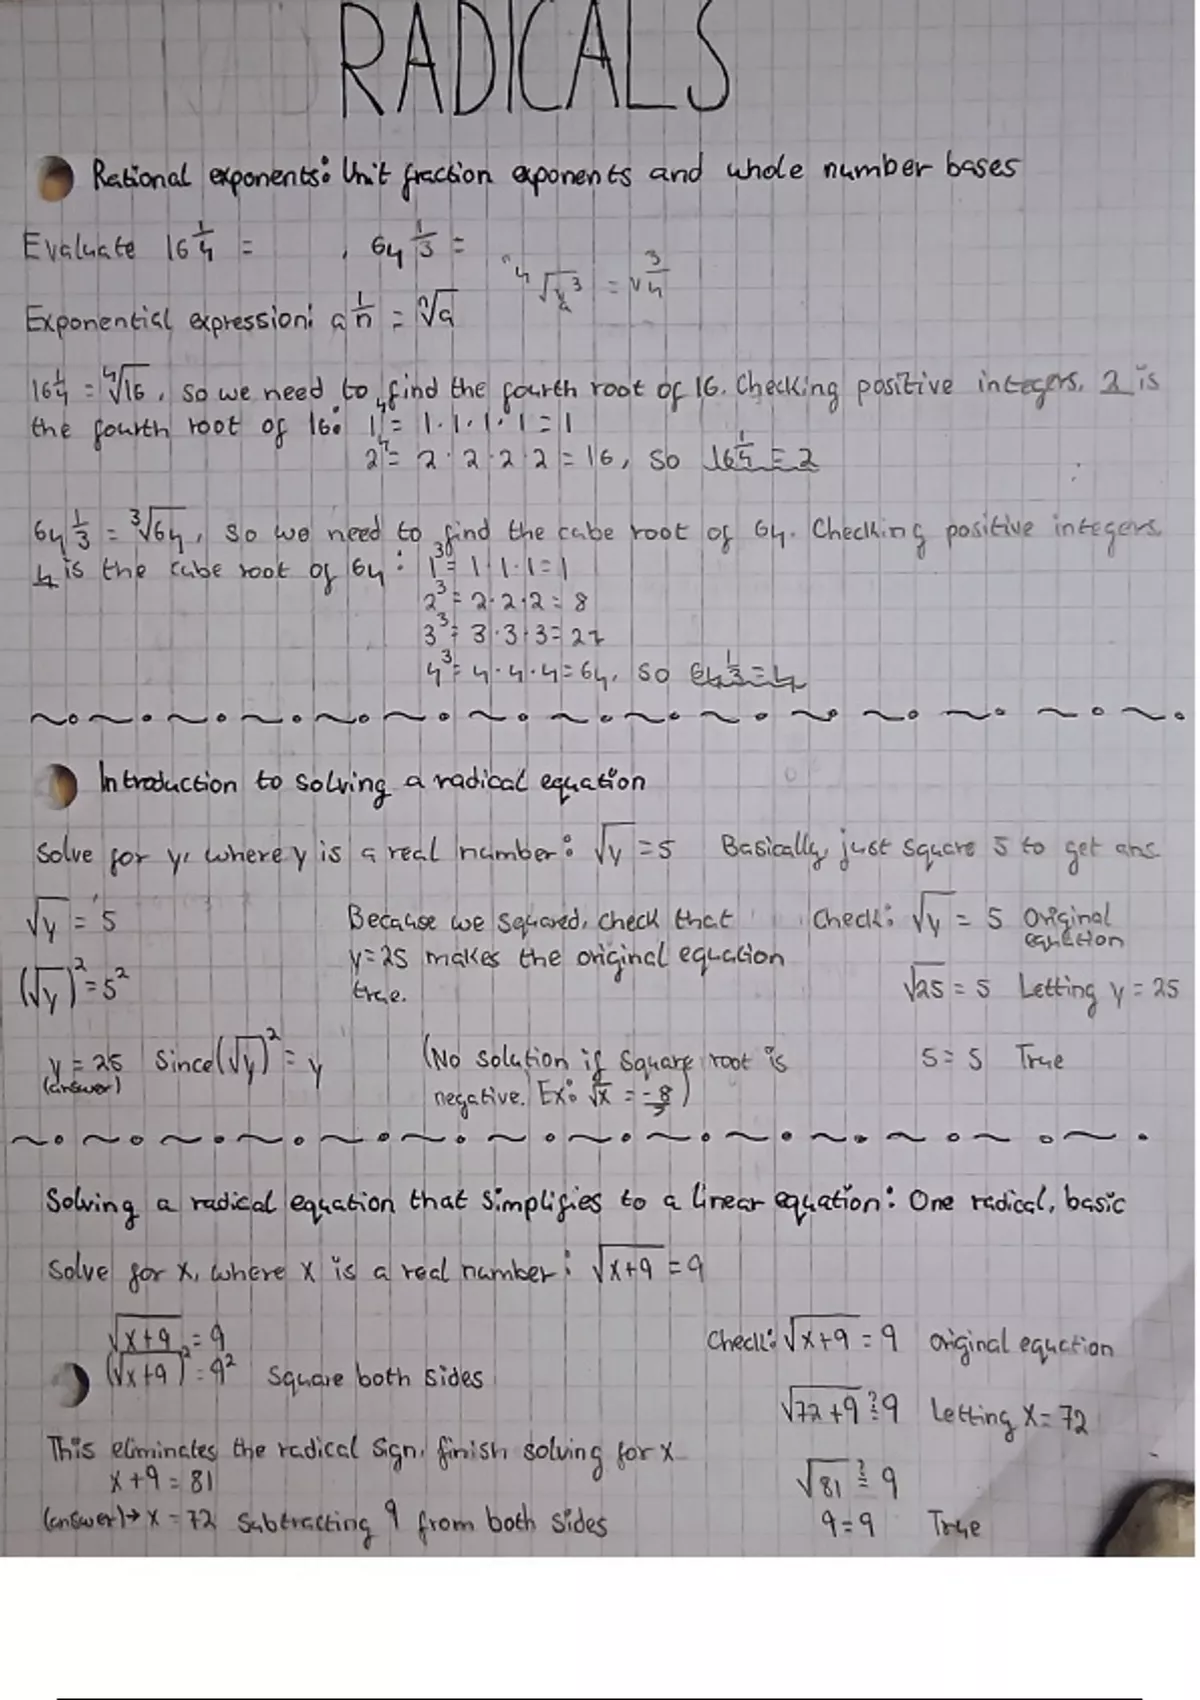 RADICALS
Rational exponents: Unit fraction exponents and whole number bases
Evaluate 16^(1/4) = , 64^(1/3) =
⁴√v³ = v^(3/4)
Exponential expression: a^(1/n) = ⁿ√a
16^(1/4) = ⁴√16, so we need to find the fourth root of 16. Checking positive integers, 2 is
the fourth root of 16: 1⁴ = 1·1·1·1 = 1
2⁴ = 2·2·2·2 = 16, so 16^(1/4) = 2
64^(1/3) = ³√64, so we need to find the cube root of 64. Checking positive integers
4 is the cube root of 64: 1³ = 1·1·1 = 1
2³ = 2·2·2 = 8
3³ = 3·3·3 = 27
4³ = 4·4·4 = 64, so 64^(1/3) = 4
Introduction to solving a radical equation
Solve for y, where y is a real number: √y = 5 Basically, just square 5 to get ans
√y = 5 Because we squared, check that Check: √y = 5 Original equation
(√y)² = 5² y = 25 makes the original equation true. √25 = 5 Letting y = 25
y = 25 Since (√y)² = y (No solution if square root is 5 = 5 True
(answer) negative. Ex: √x = -8)
Solving a radical equation that simplifies to a linear equation: One radical, basic
Solve for x, where x is a real number: √(x+9) = 9
√(x+9) = 9 Check: √(x+9) = 9 original equation
(√(x+9))² = 9² Square both sides
√(72+9) ≟ 9 Letting x = 72
This eliminates the radical sign, finish solving for x
x + 9 = 81 √81 ≟ 9
(answer)→ x = 72 Subtracting 9 from both sides 9 = 9 True